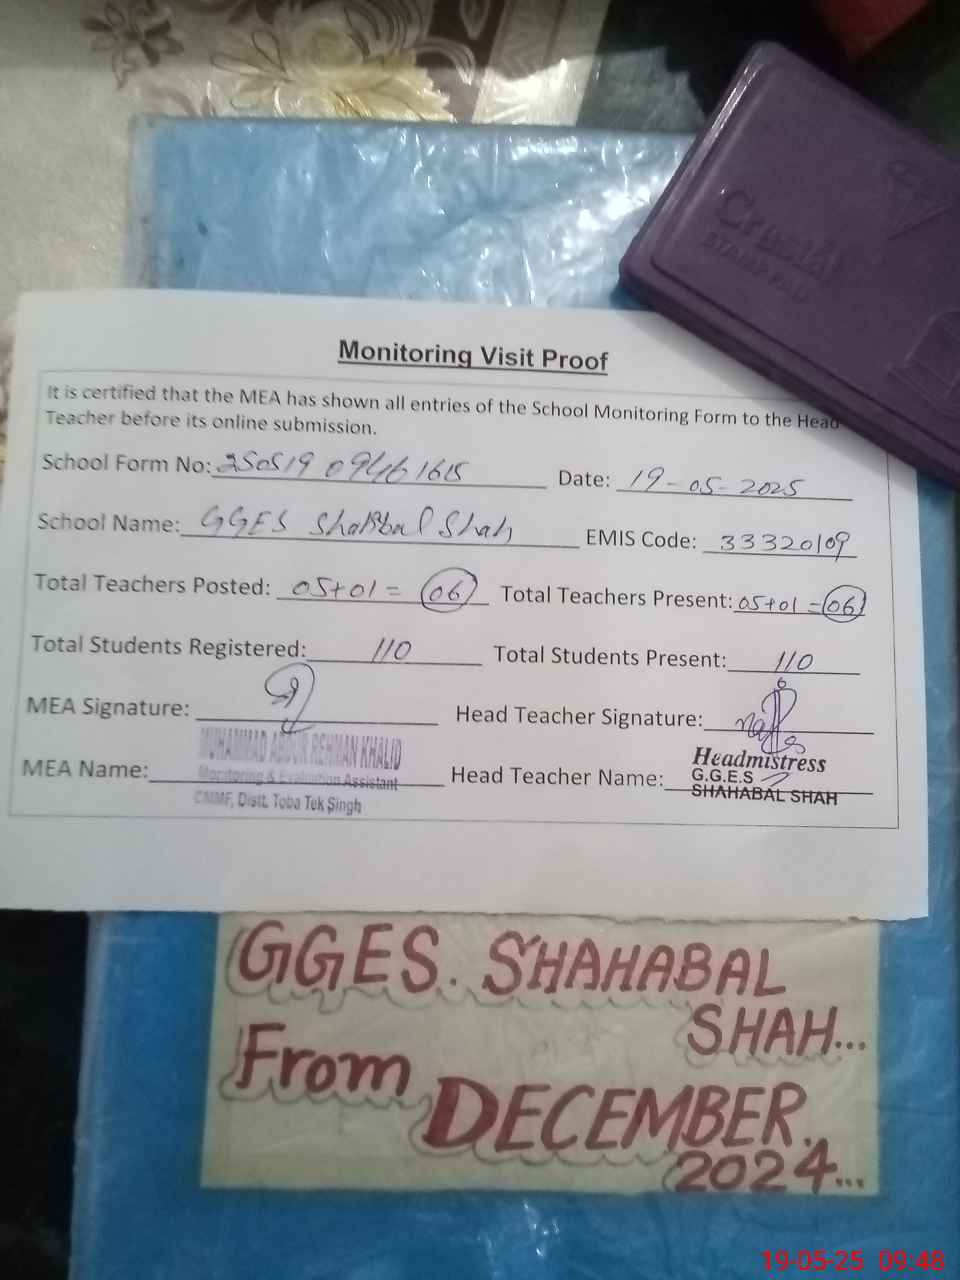 Crystal
STAMP PAD
Monitoring Visit Proof
It is certified that the MEA has shown all entries of the School Monitoring Form to the Head
Teacher before its online submission.
School Form No: Date: 19-05-2025
School Name: GGES Shahbal Shah EMIS Code: 33320109
Total Teachers Posted: 05+01 = 06 Total Teachers Present: 05+01 = 06
Total Students Registered: 110 Total Students Present: 110
MEA Signature: Head Teacher Signature:
MUHAMMAD ABDUR REHMAN KHALID
Headmistress
MEA Name: Monitoring & Evaluation Assistant Head Teacher Name: G.G.E.S
CMMF, Distt. Toba Tek Singh SHAHABAL SHAH
GGES. SHAHABAL
SHAH...
From
DECEMBER.
2024...
19-05-25 09:48